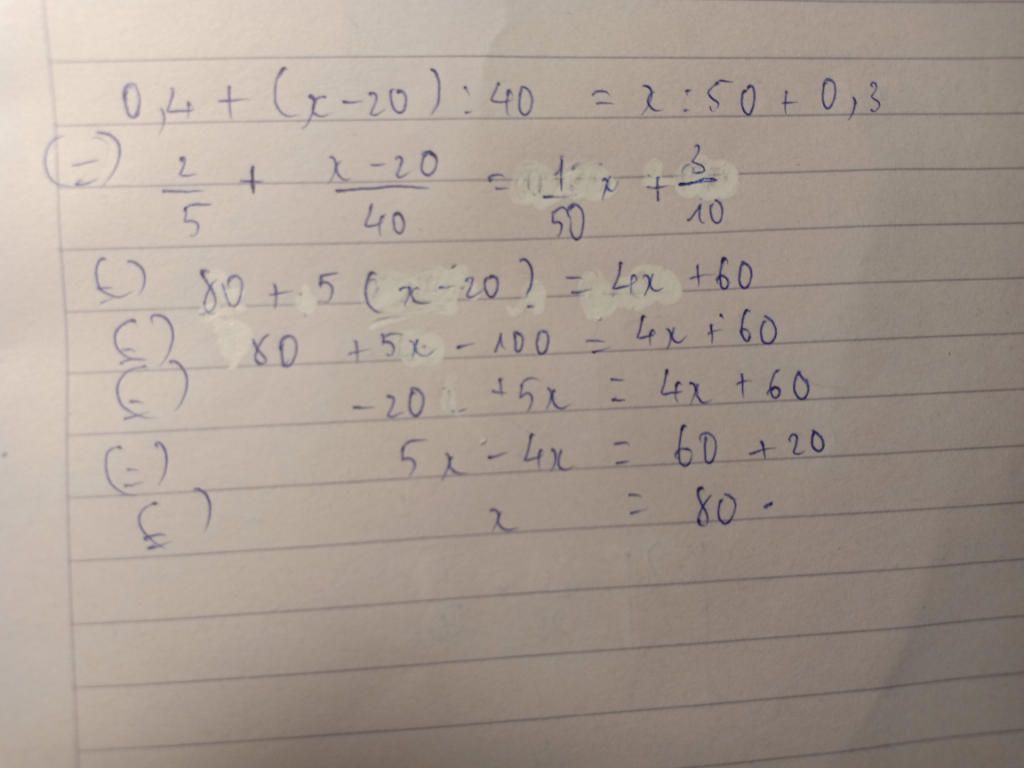 0,4 + (x-20) : 40 = x : 50 + 0,3
(=) 2/5 + x-20/40 = 1/50 x + 3/10
(=) 80 + 5 (x-20) = 4x + 60
(=) 80 + 5x - 100 = 4x + 60
(=) -20 + 5x = 4x + 60
(=) 5x - 4x = 60 + 20
(=) x = 80.